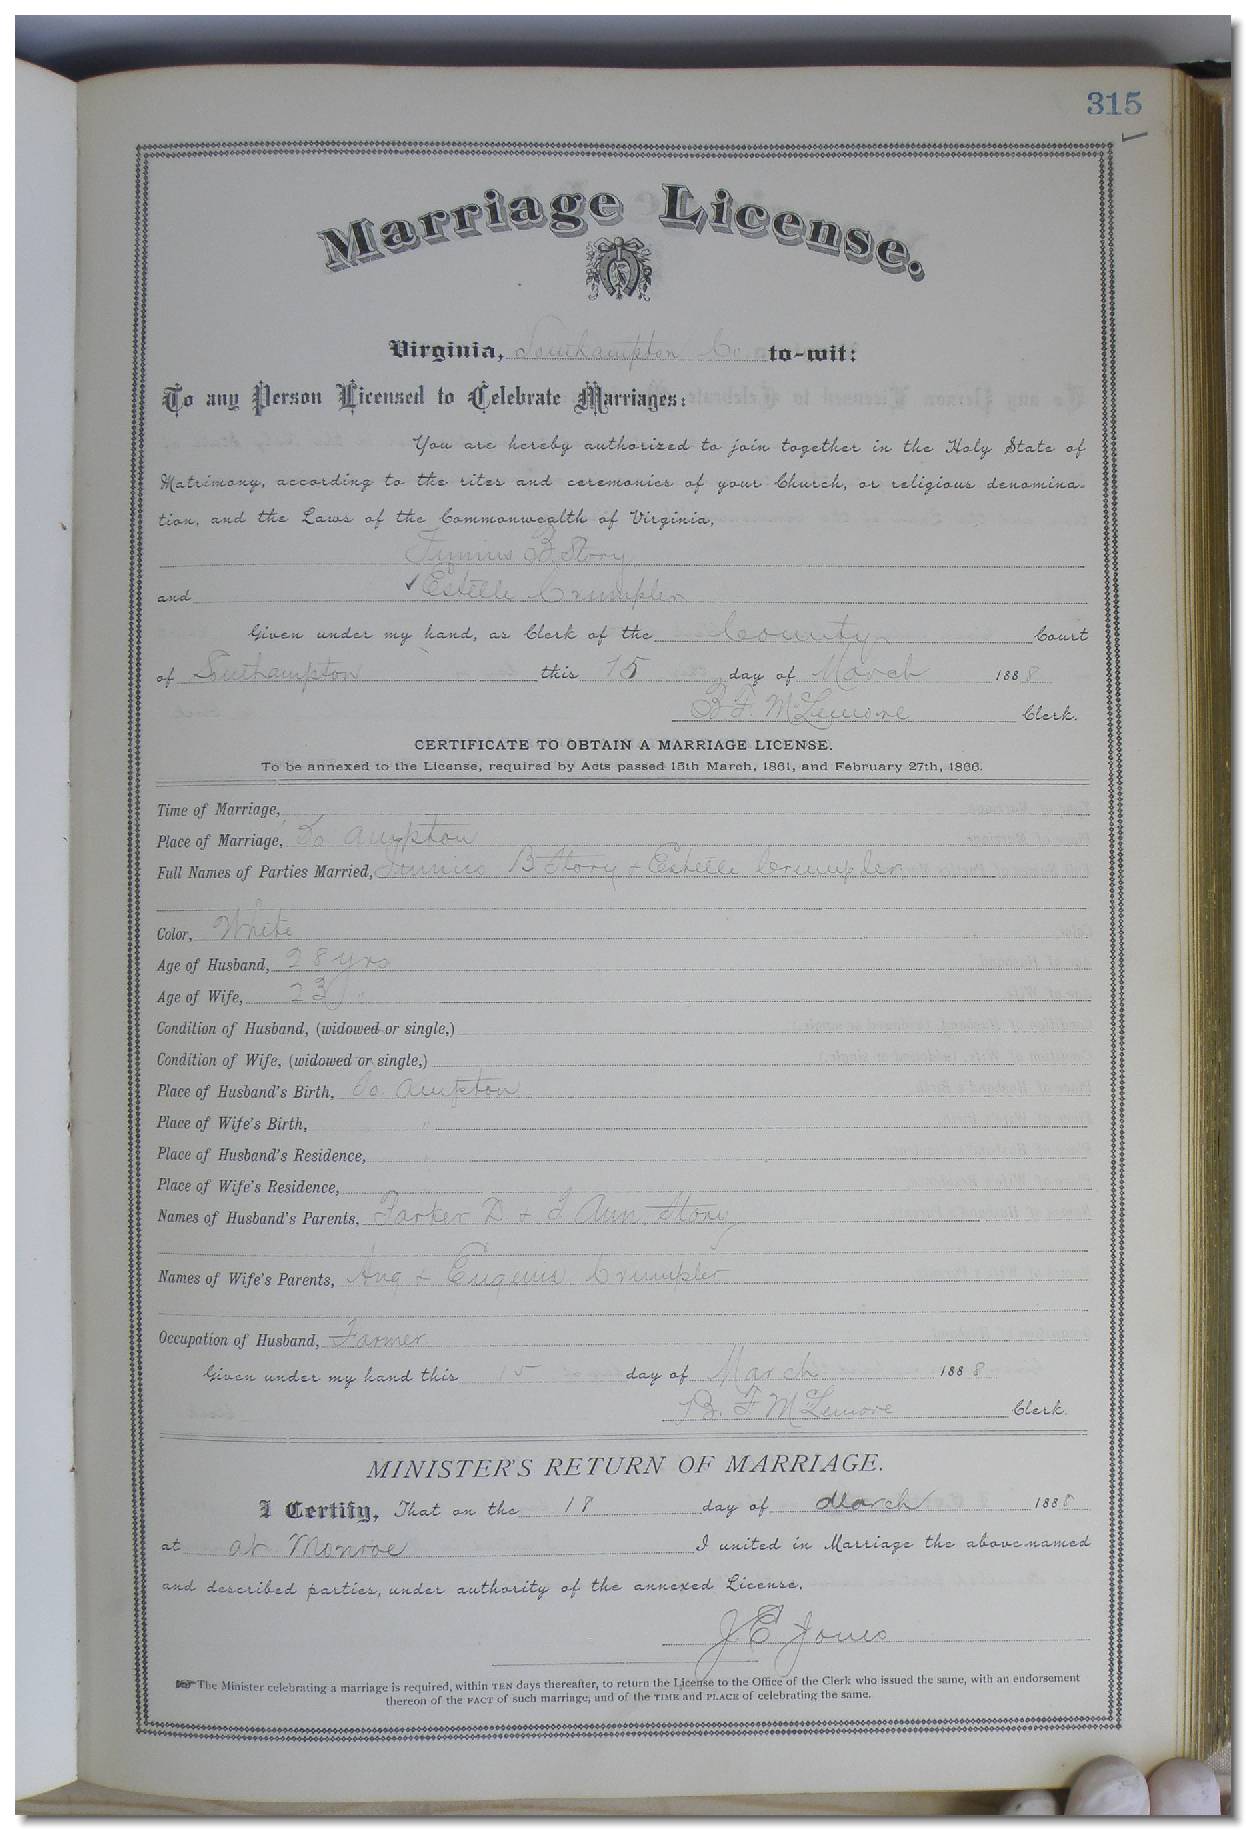 315
Marriage License.
Virginia, Southampton Co to-wit:
To any Person Licensed to Celebrate Marriages:
You are hereby authorized to join together in the Holy State of
Matrimony, according to the rites and ceremonies of your Church, or religious denomina-
tion, and the Laws of the Commonwealth of Virginia,
Junius B Story
and Estelle Crumpler
Given under my hand, as Clerk of the County Court
of Southampton this 15 day of March 1888
B. F. McLemore Clerk.
CERTIFICATE TO OBTAIN A MARRIAGE LICENSE.
To be annexed to the License, required by Acts passed 15th March, 1861, and February 27th, 1866.
Time of Marriage,
Place of Marriage, So ampton
Full Names of Parties Married, Junius B Story + Estelle Crumpler
Color, White
Age of Husband, 28 yrs
Age of Wife, 23 "
Condition of Husband, (widowed or single,)
Condition of Wife, (widowed or single,)
Place of Husband's Birth, So. ampton
Place of Wife's Birth, "
Place of Husband's Residence, "
Place of Wife's Residence,
Names of Husband's Parents, Parker D + Ann Story
Names of Wife's Parents, Aug + Eugenia Crumpler
Occupation of Husband, Farmer
Given under my hand this 15 day of March 1888
B. F. McLemore Clerk.
MINISTER'S RETURN OF MARRIAGE.
I Certify, That on the 18 day of March 1888
at at Monroe I united in Marriage the above-named
and described parties, under authority of the annexed License.
J E Jones
The Minister celebrating a marriage is required, within TEN days thereafter, to return the License to the Office of the Clerk who issued the same, with an endorsement
thereon of the FACT of such marriage, and of the TIME and PLACE of celebrating the same.